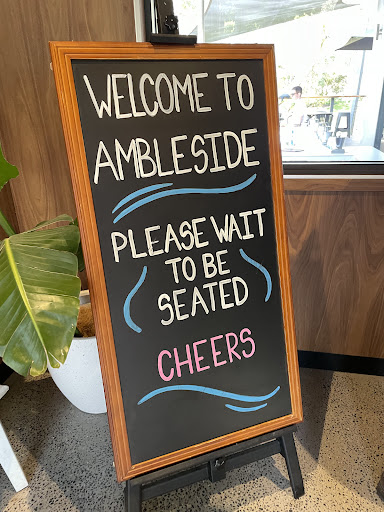 WELCOME TO
AMBLESIDE
PLEASE WAIT
TO BE
SEATED
CHEERS